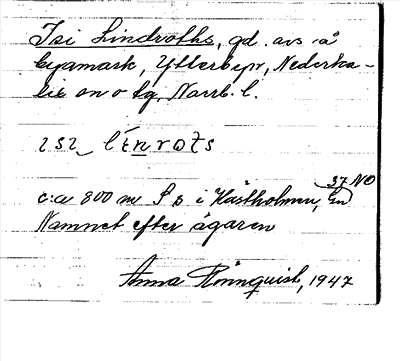 Isi Lindroths, gd. avs. å
Byamark, Ytterbyn, Nederka-
lix sn o tg, Narrb. l.
ɩsɩ lɛ́nrots
37 NO
c:a 800 m S s i Hästholmen,
Namnet efter ägaren
Anna Rönnquist, 1947